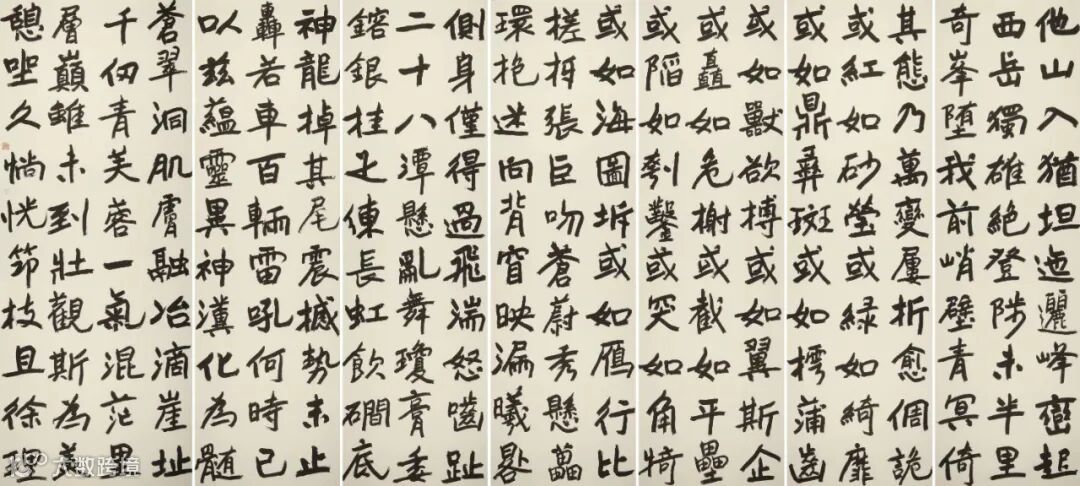 他山入猶坦迤邐峰巒起
西岳獨雄絕登陟未半里
奇峯墮我前峭壁青冥倚
其態乃萬變屢折愈倜詭
或紅如砂瑩或綠如綺靡
或如鼎彝斑或如樗蒲齒
或如獸欲搏或如翼斯企
或矗如危榭或截如平壘
或陷如刳鑿或突如角犄
或如海圖坼或如雁行比
槎枒張巨吻蒼蔚秀懸藟
環抱迷向背窅映漏曦晷
側身僅得過飛湍怒嚙趾
二十八潭懸亂舞瓊膏委
鎔銀挂疋練長虹飲磵底
神龍掉其尾震撼勢未止
轟若車百輛雷吼何時已
以茲蘊靈異神瀵化為髓
蒼翠洞肌膚融冶滴崖址
千仞青芙蓉一氣混茫
層巔雖未到壯觀斯為美
憩坐久惝恍笻枝且徐理
大数跨境